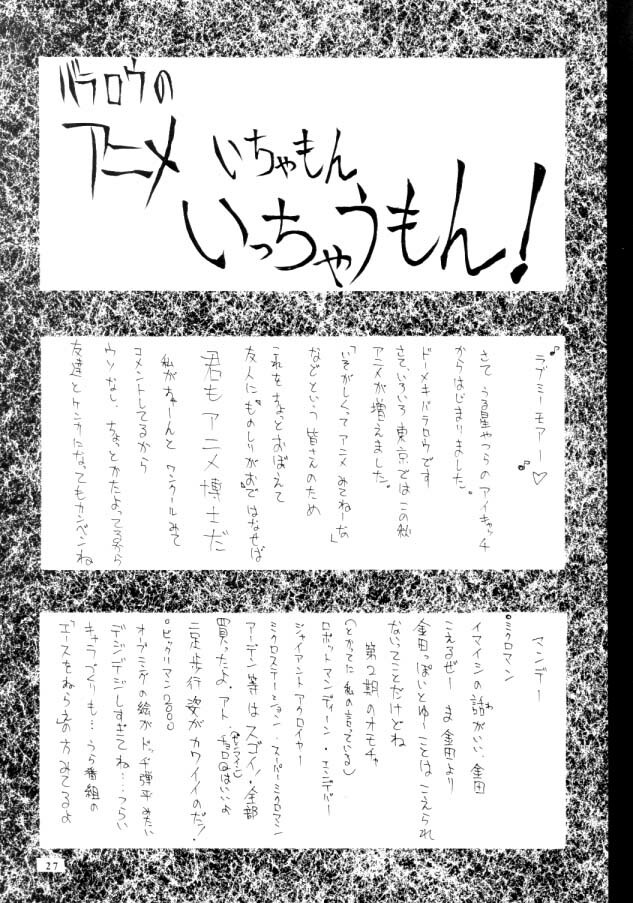 バラロウの
アニメ いちゃもん
いっちゃうもん!
♪ラブミーモアー♪♡
さて うる星やつらの アイキャッチ
からはじまりました。
ドーメキバラロウです
さて、いろいろ東京ではこの秋
アニメが増えました。
「いそがしくってアニメ みてねーな」
などという皆さんのため
これをちょっとおぼえて
友人に"ものしりがお"ではなせば
君もアニメ博士だ
私がちゃーんと ワンクールみて
コメントしてるから
ウソなし、ちょっとかたよってるから
友達とケンカになってもカンベンね
マンデー
°ミクロマン
イマイシの話がいい、金田
わ
こえるぜー ま金田より
金田っぽいとゆーことはこえられ
ないってことだけどね
第2期のオモチャ
(とかってに私の言っている)
ロボットマンディーン・エンデバー
ジャイアントアクロイヤー
ミクロステーション・スーパーミクロマン
アーデン等はスゴイ!全部
買ったよ。アト、チョロQはいいよ
(ゼンマイシキ)
二足歩行姿がカワイイのだ!
°ビックリマン2000
オープニングの絵がドッヂ弾平みたい
デジデジしすぎてね…つらい
キャラづくりも…うら番組の
「エースをねらえ」の方みてるよ
27